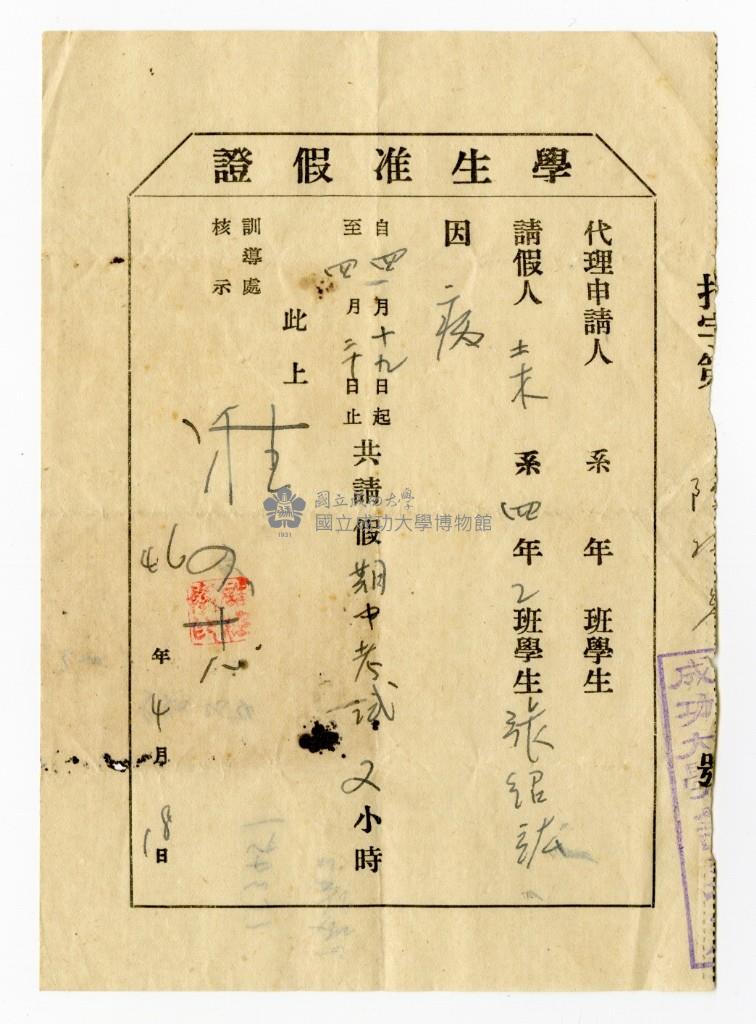 學生准假證
代理申請人 系 年 班學生
請假人 土木系四年2班學生張紹
因 病
自四月十九日起
至四月二十日止
共請假期中考試又小時
此上
訓導處
核示
准
四十八
46年4月18日
國立成功大學
國立成功大學博物館
1931
號
成功大學